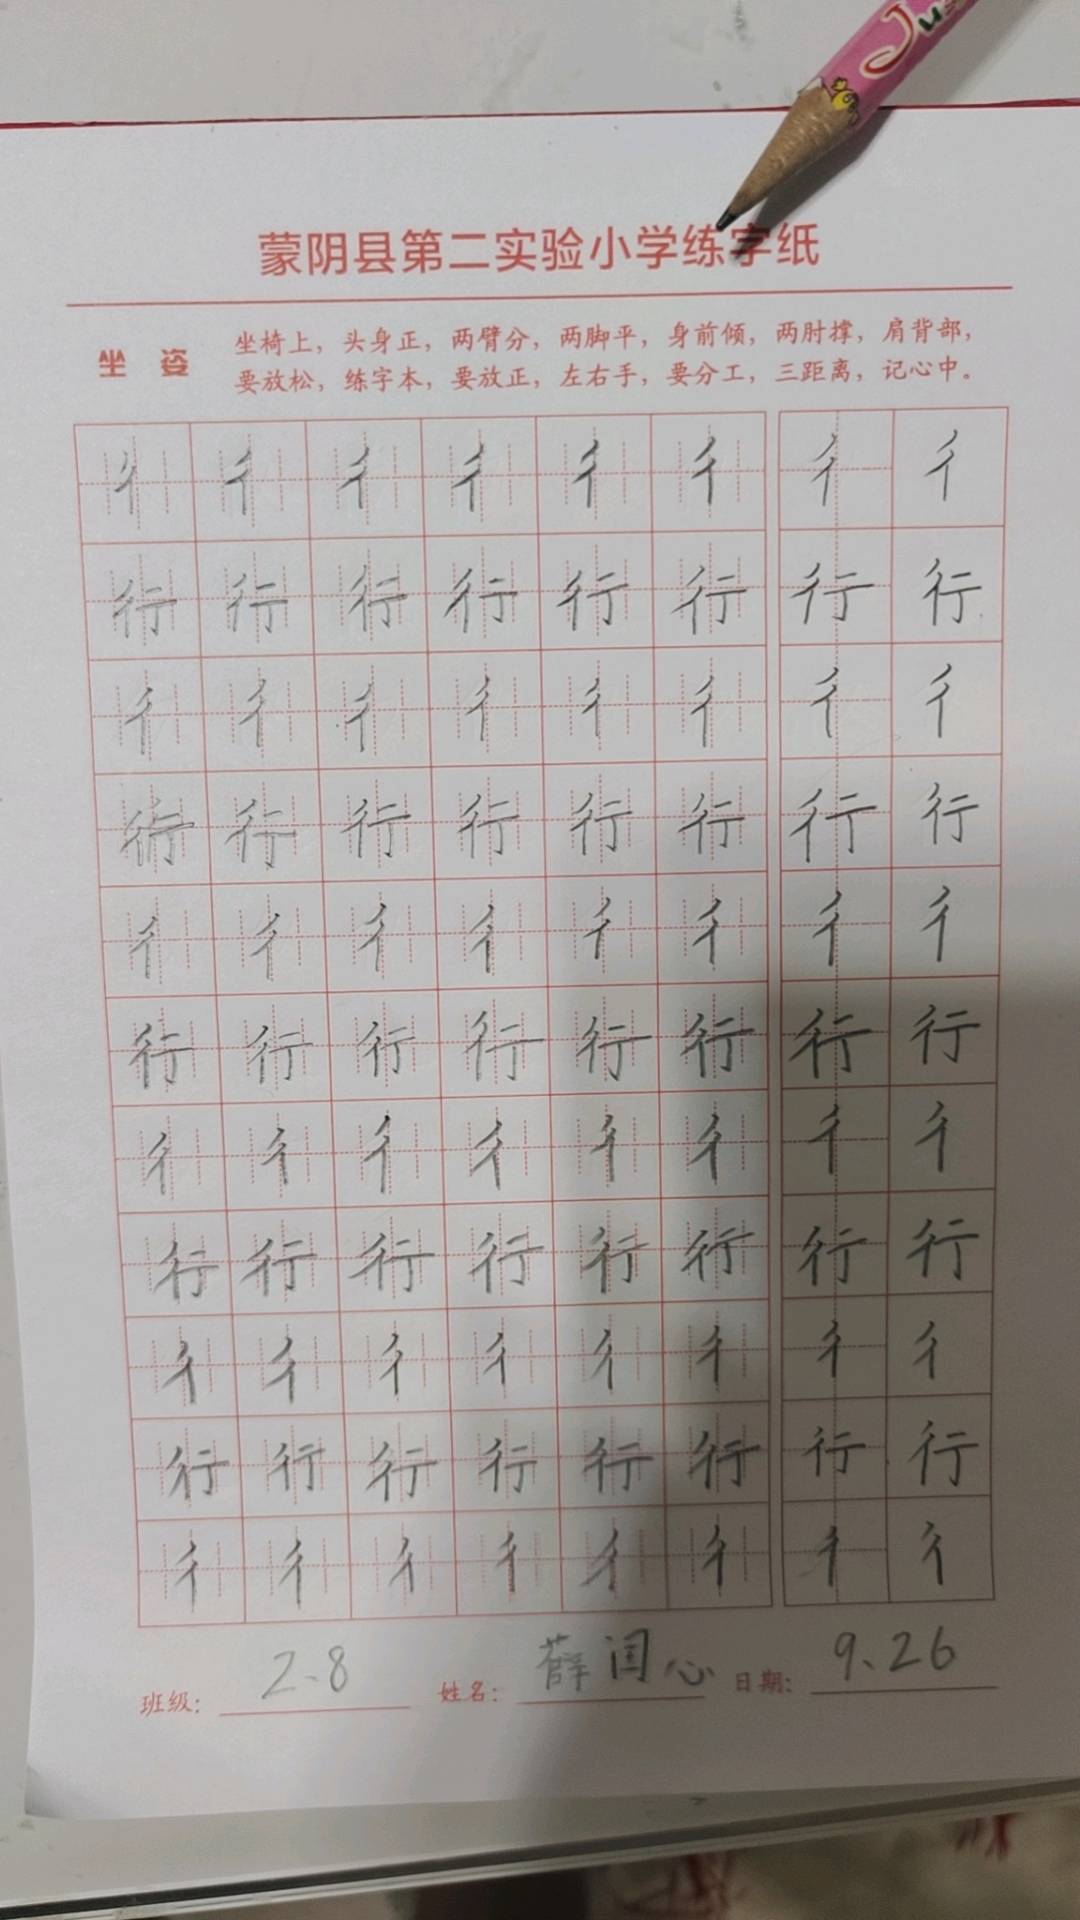 蒙阴县第二实验小学练字纸
坐 姿
坐椅上，头身正，两臂分，两脚平，身前倾，两肘撑，肩背部，
要放松，练字本，要放正，左右手，要分工，三距离，记心中。
彳 彳 彳 彳 彳 彳 彳 彳
行 行 行 行 行 行 行 行
彳 彳 彳 彳 彳 彳 彳 彳
行 行 行 行 行 行 行 行
彳 彳 彳 彳 彳 彳 彳 彳
行 行 行 行 行 行 行 行
彳 彳 彳 彳 彳 彳 彳 彳
行 行 行 行 行 行 行 行
彳 彳 彳 彳 彳 彳 彳 彳
行 行 行 行 行 行 行 行
彳 彳 彳 彳 彳 彳 彳 彳
班级： 2、8 姓名： 薛闰心 日期： 9、26